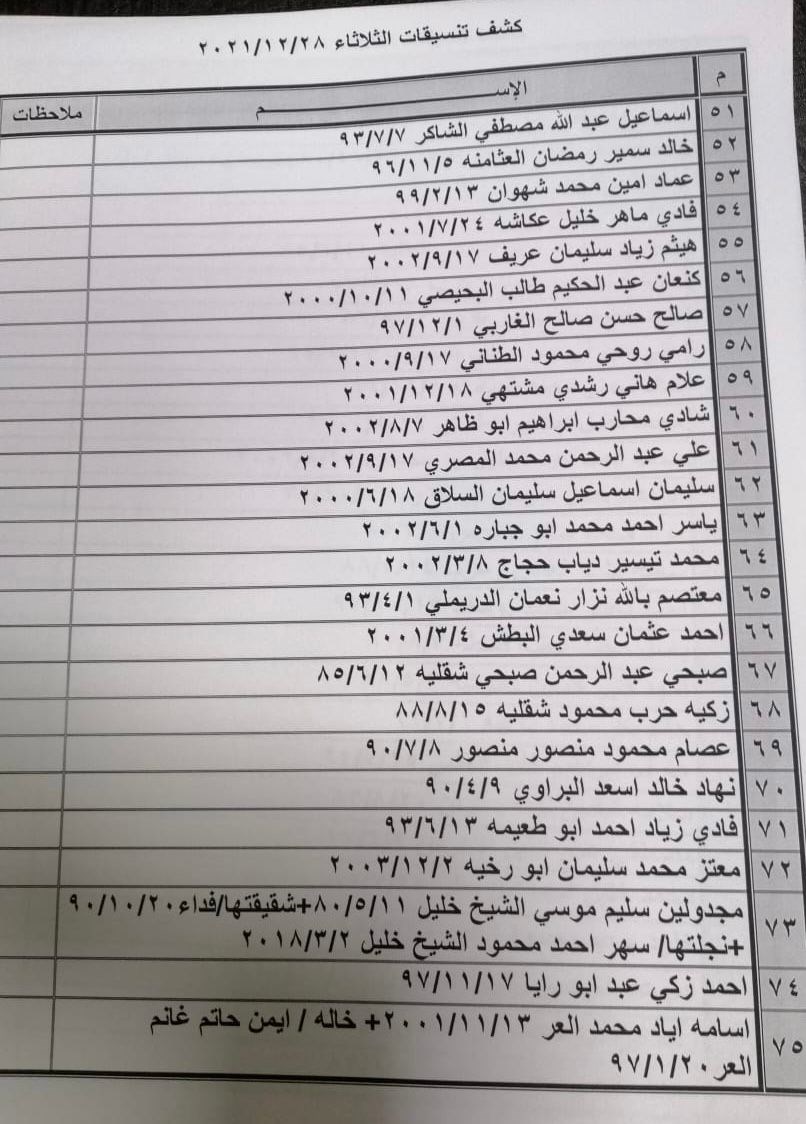 كشف تنسيقات الثلاثاء ٢٠٢١/١٢/٢٨
م الإســـــــــم ملاحظات
٥١ اسماعيل عبد الله مصطفي الشاكر ٩٣/٧/٧
٥٢ خالد سمير رمضان العثامنه ٩٦/١١/٥
٥٣ عماد امين محمد شهوان ٩٩/٢/١٣
٥٤ فادي ماهر خليل عكاشه ٢٠٠١/٧/٢٤
٥٥ هيثم زياد سليمان عريف ٢٠٠٢/٩/١٧
٥٦ كنعان عبد الحكيم طالب البحيصي ٢٠٠٠/١٠/١١
٥٧ صالح حسن صالح الغاربي ٩٧/١٢/١
٥٨ رامي روحي محمود الطناني ٢٠٠٠/٩/١٧
٥٩ علام هاني رشدي مشتهي ٢٠٠١/١٢/١٨
٦٠ شادي محارب ابراهيم ابو ظاهر ٢٠٠٢/٨/٧
٦١ علي عبد الرحمن محمد المصري ٢٠٠٢/٩/١٧
٦٢ سليمان اسماعيل سليمان السلاق ٢٠٠٠/٦/١٨
٦٣ ياسر احمد محمد ابو جباره ٢٠٠٢/٦/١
٦٤ محمد تيسير دياب حجاج ٢٠٠٢/٣/٨
٦٥ معتصم بالله نزار نعمان الدريملي ٩٣/٤/١
٦٦ احمد عثمان سعدي البطش ٢٠٠١/٣/٤
٦٧ صبحي عبد الرحمن صبحي شقليه ٨٥/٦/١٢
٦٨ زكيه حرب محمود شقليه ٨٨/٨/١٥
٦٩ عصام محمود منصور منصور ٩٠/٧/٨
٧٠ نهاد خالد اسعد البراوي ٩٠/٤/٩
٧١ فادي زياد احمد ابو طعيمه ٩٣/٦/١٣
٧٢ معتز محمد سليمان ابو رخيه ٢٠٠٣/١٢/٢
٧٣ مجدولين سليم موسي الشيخ خليل ٨٠/٥/١١+شقيقتها/فداء ٩٠/١٠/٢٠
+نجلتها/ سهر احمد محمود الشيخ خليل ٢٠١٨/٣/٢
٧٤ احمد زكي عبد ابو رايا ٩٧/١١/١٧
٧٥ اسامه اياد محمد العر ٢٠٠١/١١/١٣+ خاله / ايمن حاتم غانم
العر ٩٧/١/٢٠